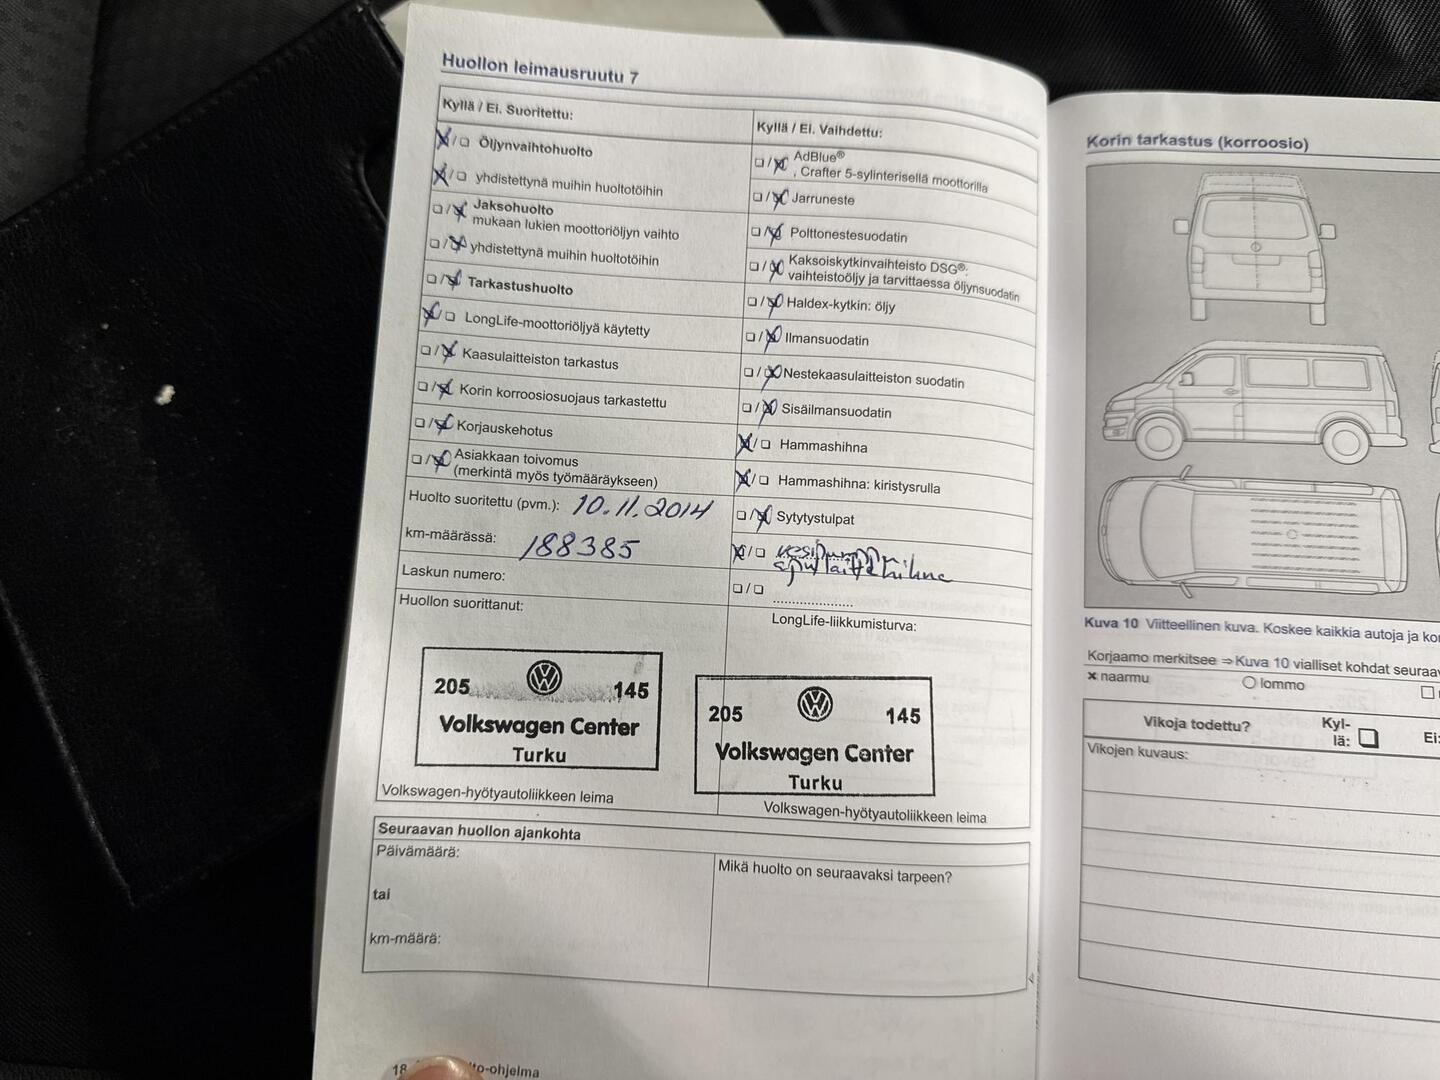 Huollon leimausruutu 7
Kyllä / Ei. Suoritettu:
Öljynvaihtohuolto
yhdistettynä muihin huoltotöihin
Jaksohuolto
mukaan lukien moottoriöljyn vaihto
yhdistettynä muihin huoltotöihin
Tarkastushuolto
LongLife-moottoriöljyä käytetty
Kaasulaitteiston tarkastus
Korin korroosiosuojaus tarkastettu
Korjauskehotus
Asiakkaan toivomus
(merkintä myös työmääräykseen)
Huolto suoritettu (pvm.): 10.11.2014
km-määrässä: 188385
Laskun numero:
Huollon suorittanut:
205 145
Volkswagen Center
Turku
Volkswagen-hyötyautoliikkeen leima
Kyllä / Ei. Vaihdettu:
AdBlue®
, Crafter 5-sylinterisellä moottorilla
Jarruneste
Polttonestesuodatin
Kaksoiskytkinvaihteisto DSG®:
vaihteistoöljy ja tarvittaessa öljynsuodatin
Haldex-kytkin: öljy
Ilmansuodatin
Nestekaasulaitteiston suodatin
Sisäilmansuodatin
Hammashihna
Hammashihna: kiristysrulla
Sytytystulpat
vesipumppu
apulaitehihna
LongLife-liikkumisturva:
205 145
Volkswagen Center
Turku
Volkswagen-hyötyautoliikkeen leima
Seuraavan huollon ajankohta
Päivämäärä:
tai
km-määrä:
Mikä huolto on seuraavaksi tarpeen?
18
to-ohjelma
Korin tarkastus (korroosio)
Kuva 10 Viitteellinen kuva. Koskee kaikkia autoja ja
Korjaamo merkitsee ⇒ Kuva 10 vialliset kohdat
naarmu
lommo
Vikoja todettu? Kyl-
lä: Ei:
Vikojen kuvaus: